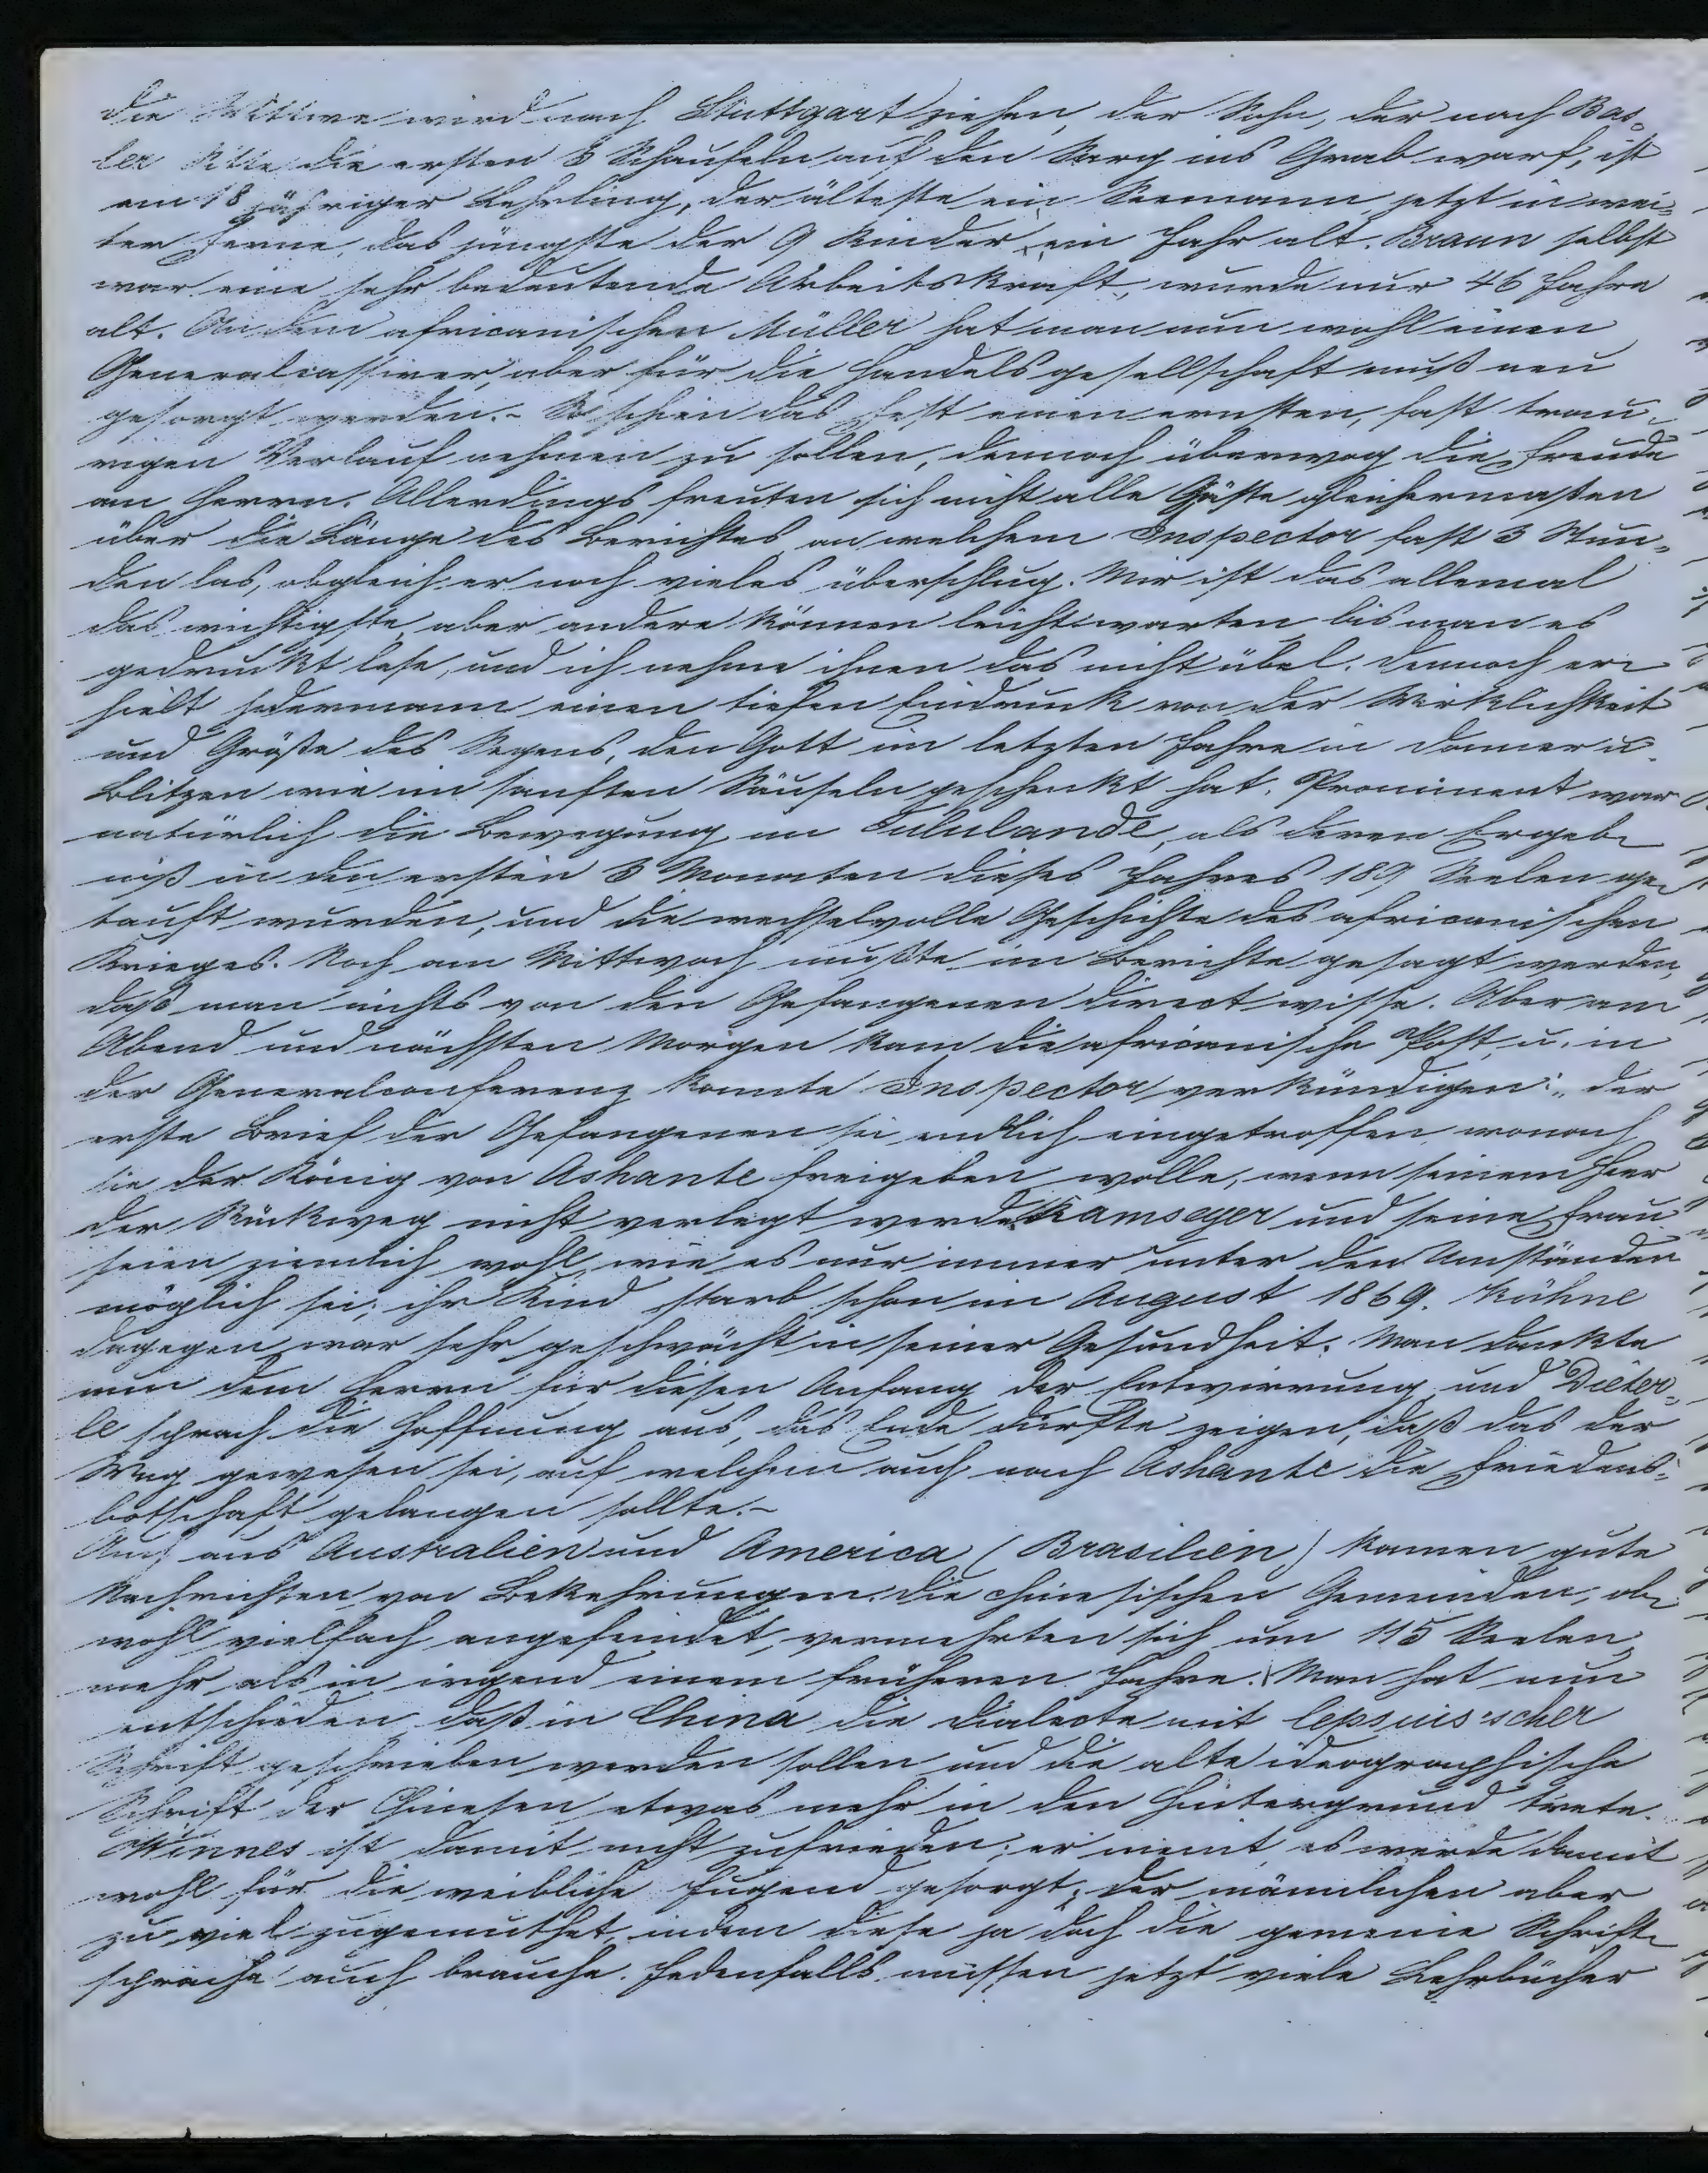 Die Wittwe wird nach Stuttgart ziehen, der Sohn, der nach Bas-
ler Sitte die ersten 3 Schaufeln auf den Sarg ins Grab warf, ist
ein 18 jähriger Lehrling, der älteste ein Seemann jetzt in wei-
ter Ferne, das jüngste der 9 Kinder ein Jahr alt. Braun selbst
war eine sehr bedeutende Arbeitskraft, wurde nur 46 Jahre
alt. An dem africanischen Müller hat man nun wohl einen
Generalcassirer, aber für die Handelsgesellschaft muß neu
gesorgt werden.- So schien das Fest einen ernsten, fast trau-
rigen Verlauf nehmen zu sollen, dennoch überwog die Freude
am Herrn. Allerdings freuten sich nicht alle Gäste gleichermaßen
über die Länge des Berichtes an welchem Inspector fast 3 Stun-
den las, obgleich er noch vieles überschlug. Mir ist das allemal
das wichtigste, aber andere können leicht warten bis man es
gedruckt lese, und ich nehme ihnen das nicht übel. Dennoch er-
hielt jedermann einen tiefen Eindruck von der Wirklichkeit
und Größe des Segens, den Gott im letzten Jahre in Donner u.
Blitzen wie im sanften Säuseln geschenkt hat. Prominent war
natürlich die Bewegung im Tululande, als deren Ergeb-
niß in den ersten 3 Monaten dieses Jahres 189 Seelen ge-
tauft wurden, und die wechselvolle Geschichte des africanischen
Krieges. Noch am Mittwoch mußte im Berichte gesagt werden,
daß man nichts von den Gefangenen direct wisse. Aber am
Abend und nächsten Morgen kam die africanische Post, u. in
der Generalconferenz konnte Inspector verkündigen: der
erste Brief der Gefangenen sei endlich eingetroffen, wonach
sie der König von Ashante freigeben wolle, wenn seinem Heer
der Rückweg nicht verlegt werde. Ramseyer und seine Frau
seien ziemlich wohl, wie es nur immer unter den Umständen
möglich sei; ihr Kind starb schon im August 1869. Kühne
dagegen war sehr geschwächt in seiner Gesundheit. Man dankte
nun dem Herrn für diesen Anfang der Entwirrung, und Dieter-
le sprach die Hoffnung aus, das Ende dürfte zeigen, daß das der
Weg gewesen sei, auf welchem auch nach Ashante die Friedens-
botschaft gelangen sollte.-
Auch aus Australien und America (Brasilien) kamen gute
Nachrichten von Bekehrungen. Die chinesischen Gemeinden, ob-
wohl vielfach angefeindet, vermehrten sich um 115 Seelen,
mehr als in irgend einem früheren Jahre. Man hat nun
entschieden daß in China die Dialecte mit lepsius'scher
Schrift geschrieben werden sollen und die alte ideographische
Schrift der Chinesen etwas mehr in den Hintergrund trete.
Winnes ist damit nicht zufrieden; er meint es werde damit
wohl für die weibliche Jugend gesorgt, der männlichen aber
zu viel zugemuthet, indem diese ja doch die gemeine Schrift-
sprache auch brauche. Jedenfalls müssen jetzt viele Lehrbücher